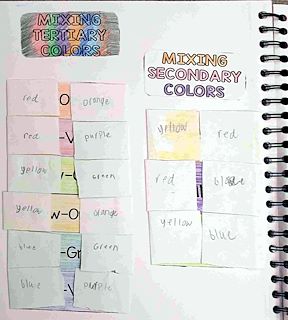 MIXING
TERTIARY
COLORS
red O orange
red -V purple
yellow w- green
yellow w-O orange
blue -Gr Green
blue -V purple
MIXING
SECONDARY
COLORS
yellow red
red blue
yellow blue